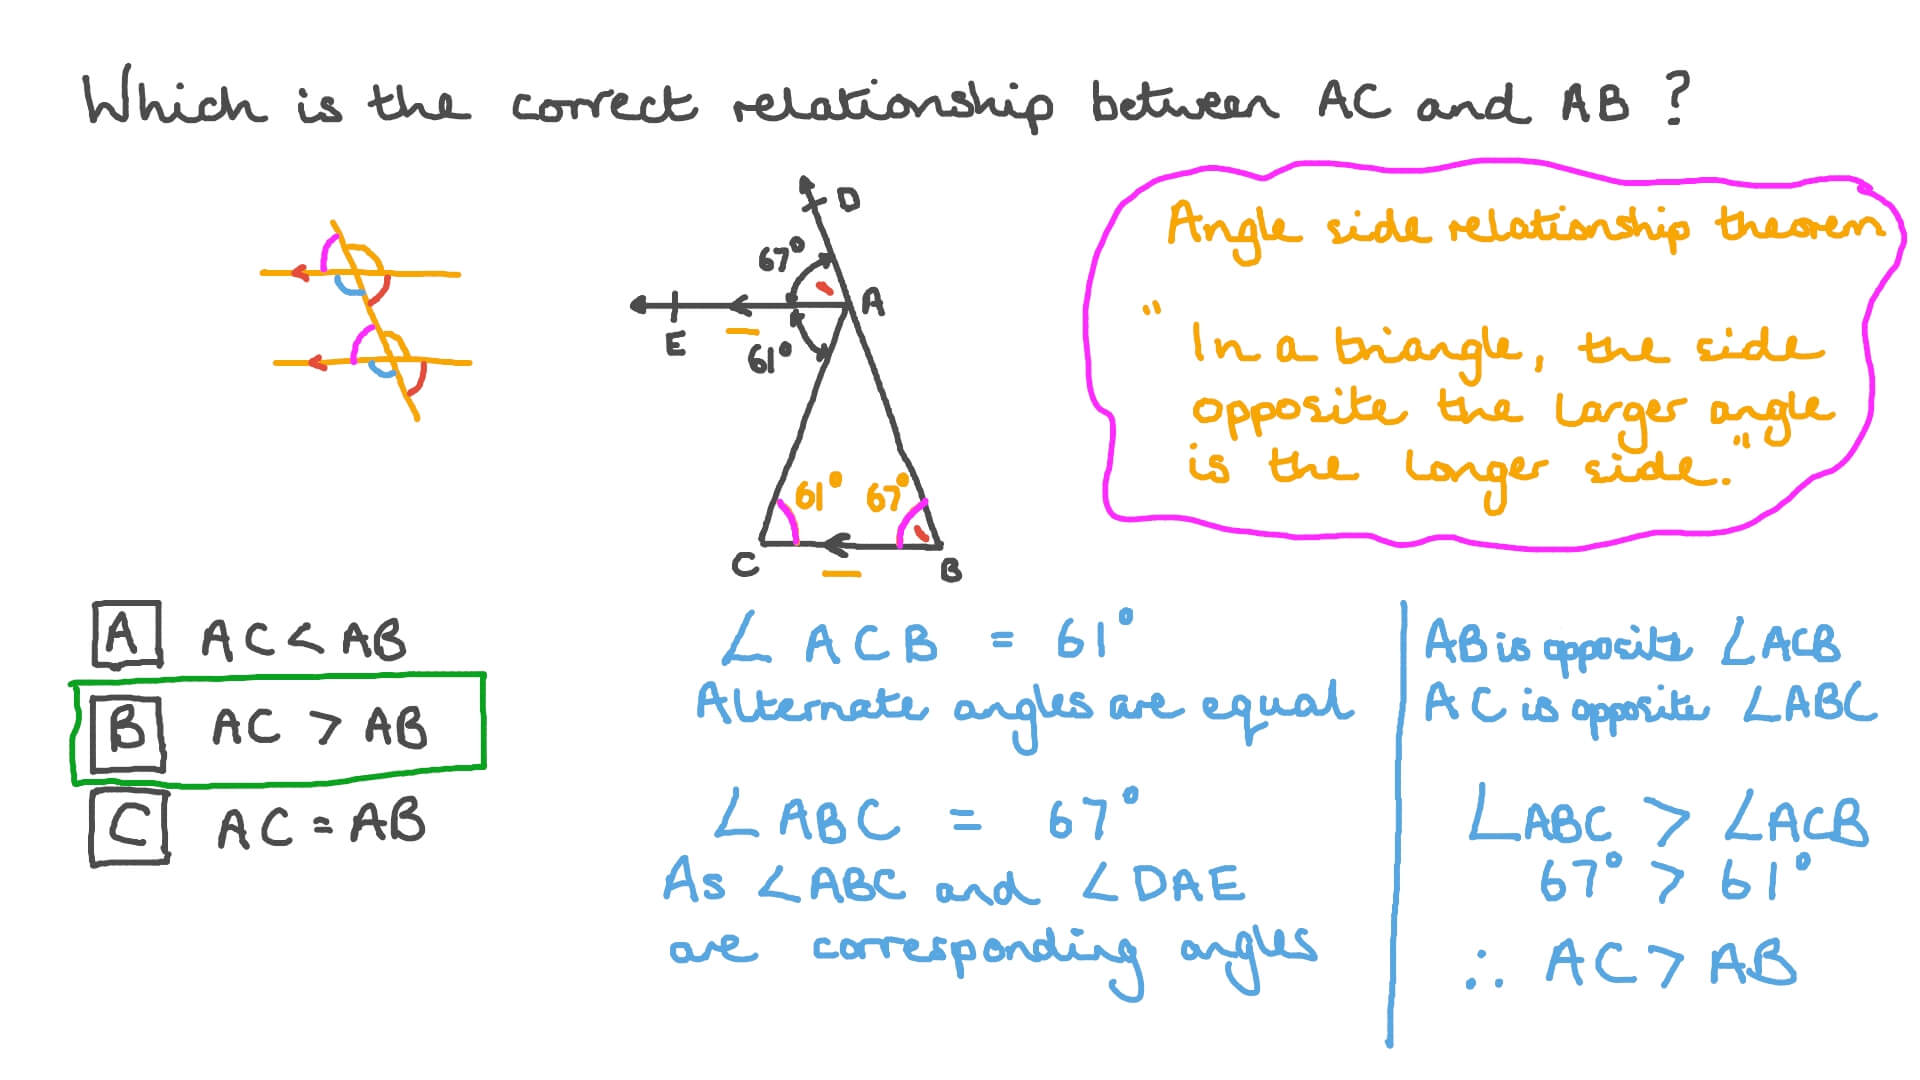 Which is the correct relationship between AC and AB ?
D
67°
A
E
61°
61° 67°
C
B
Angle side relationship theorem
"In a triangle, the side
opposite the larger angle
is the longer side."
A AC < AB
B AC > AB
C AC = AB
∠ACB = 61°
Alternate angles are equal
∠ABC = 67°
As ∠ABC and ∠DAE
are corresponding angles
AB is opposite ∠ACB
AC is opposite ∠ABC
∠ABC > ∠ACB
67° > 61°
∴ AC > AB